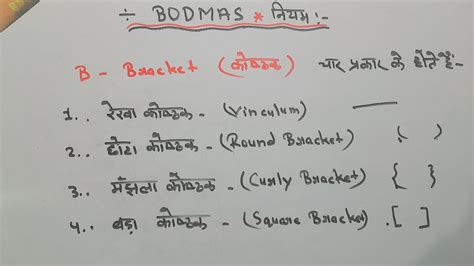 ÷ BODMAS * नियम :-
B - Bracket (कोष्ठक) चार प्रकार के होते हैं:-
1.. रेखा कोष्ठक - (Vinculum) ——
2.. छोटा कोष्ठक - (Round Bracket) ( )
3.. मँझला कोष्ठक - (Curly Bracket) { }
4.. बड़ा कोष्ठक - (Square Bracket) . [ ]